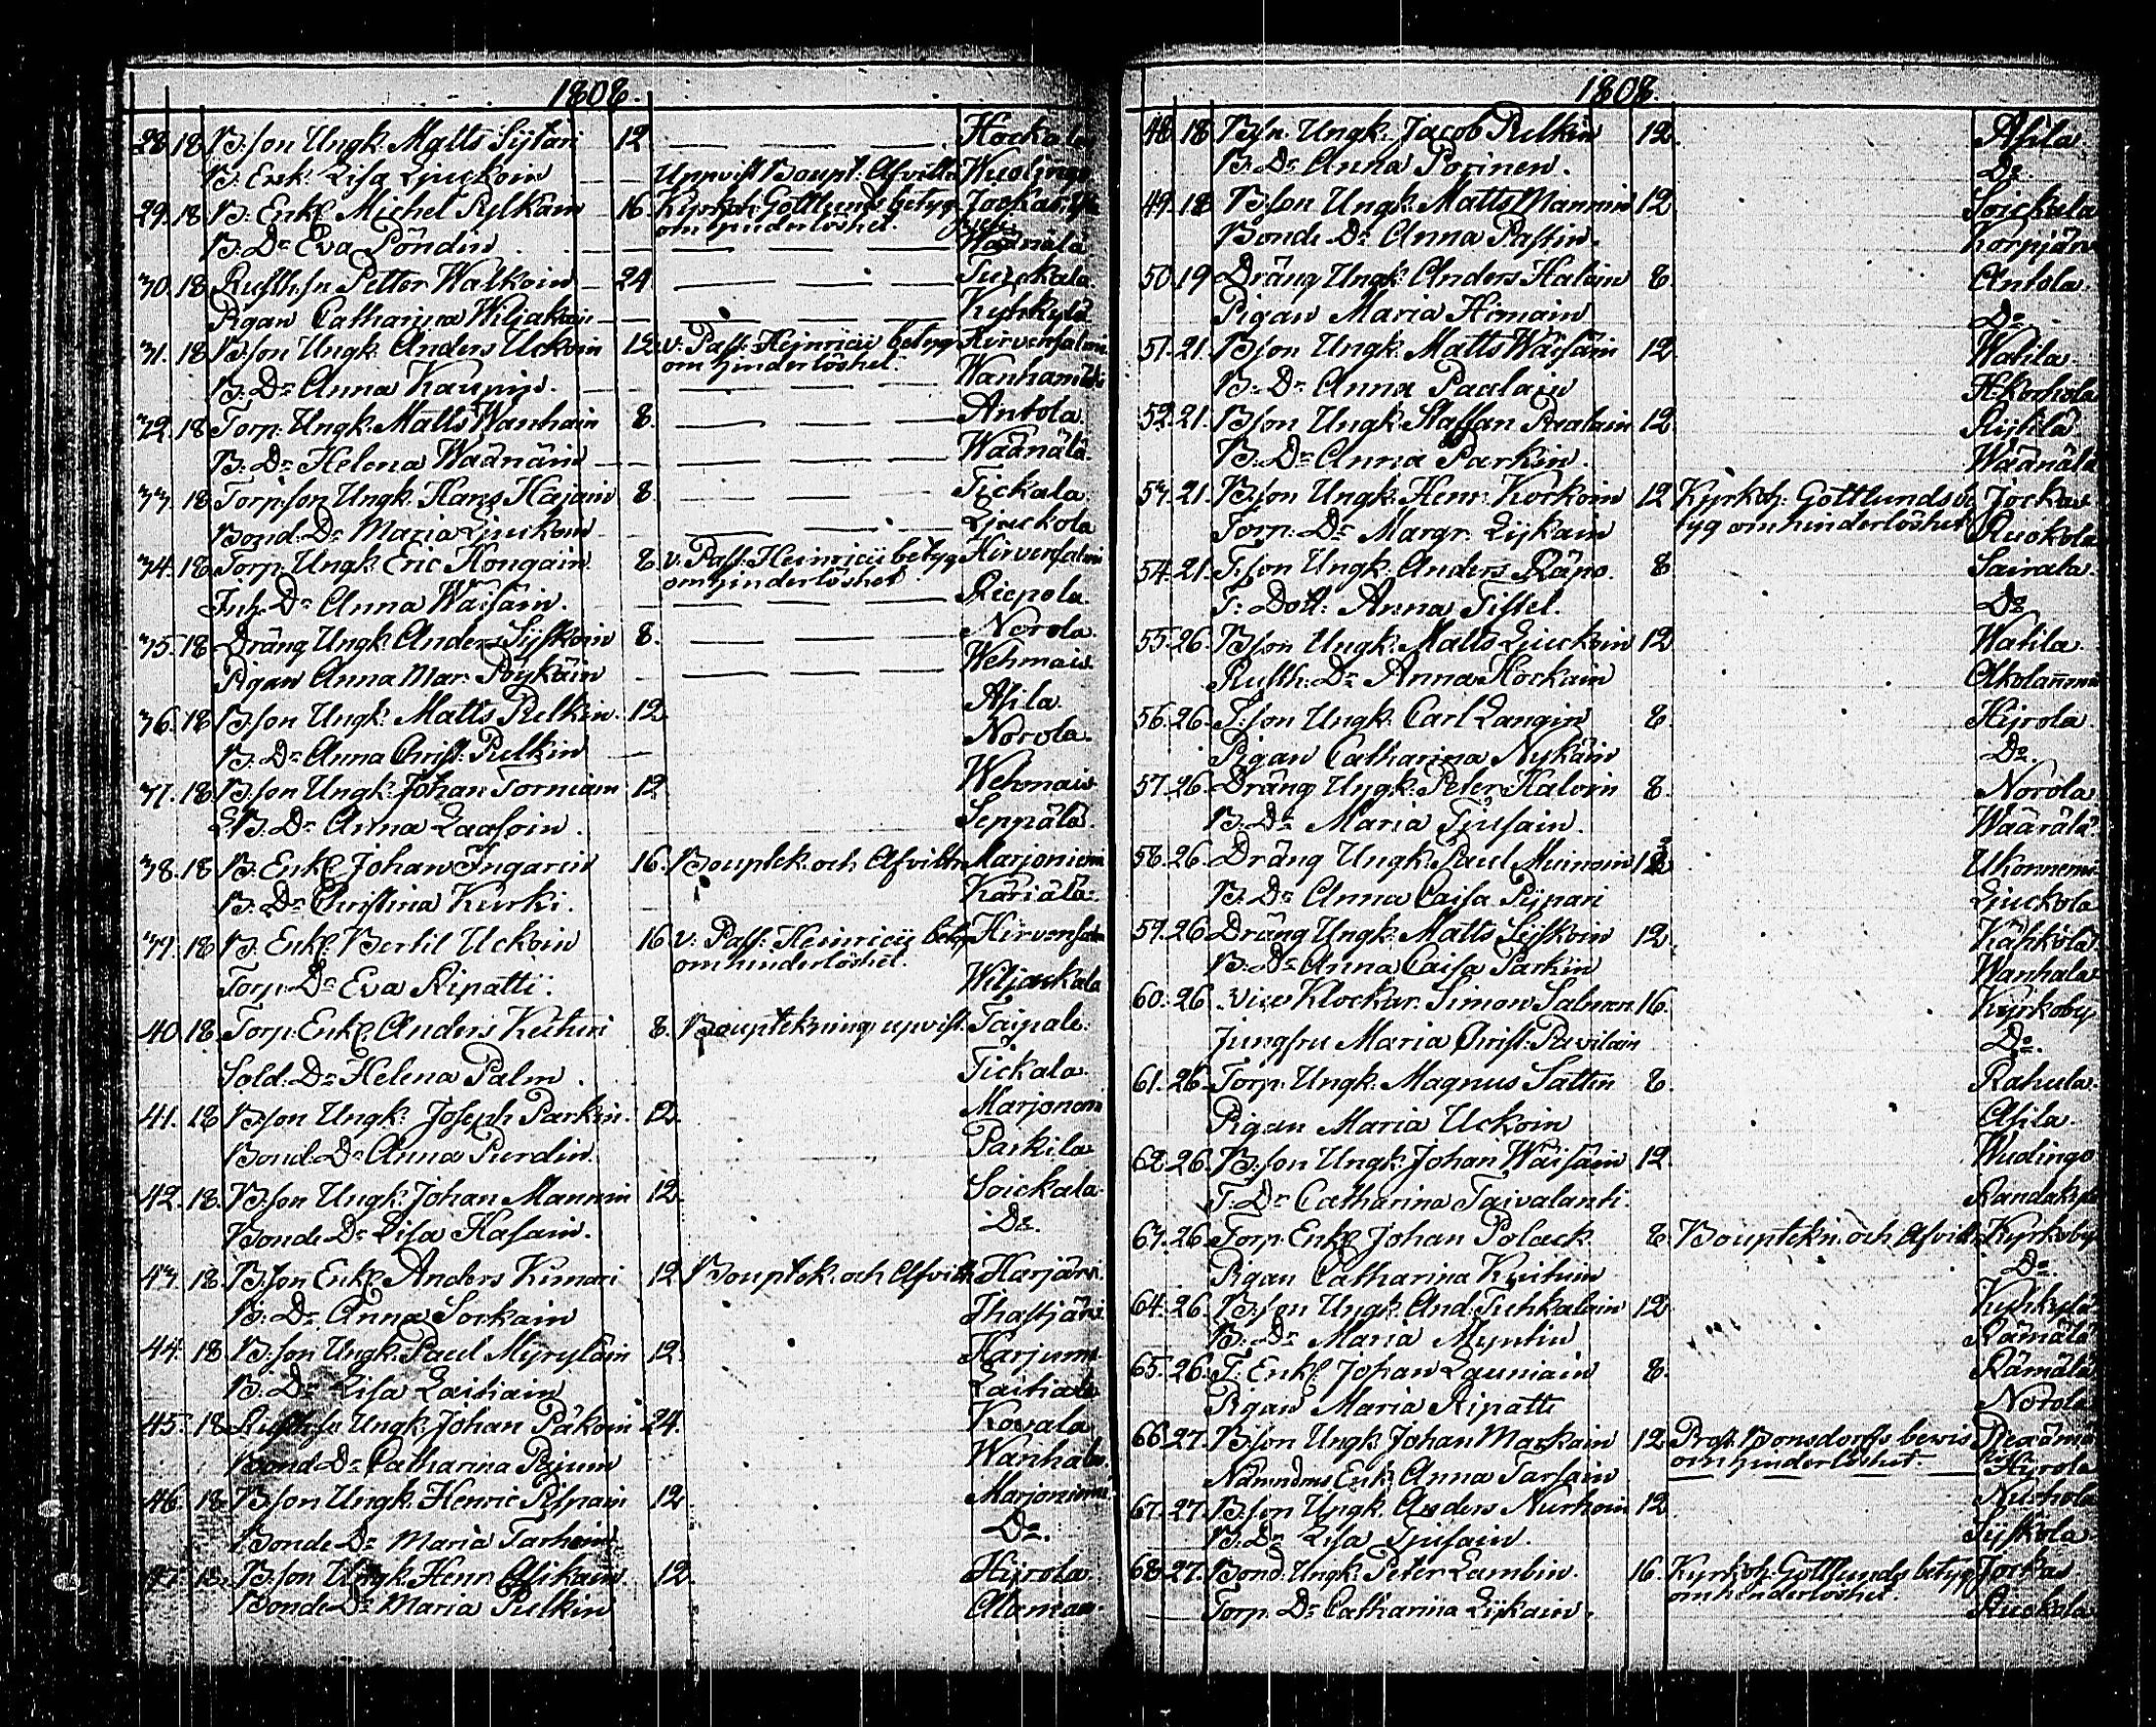 1808.
28. 18 B:son Ungk: Matts Sÿtäri 12 Hocka
B: Enk: Lisa Liuckoin Uppvist Boupt: Afvittr Wuolingo
29. 18. B: Enkl. Michel Pylkäin 16. Kyrkoh: Gottlunds betyg Jockas
om hinderlöshet.
B: Dr Eva Pöndin Wäänälä
30. 18 Rusth:sn Petter Walkoin 24 Tuickala.
Pigan Catharina Wiljakain Kyhkylä
31. 18 B:son Ungk: Anders Uckoin 12 v: Past: Heinricii betyg Hirvensalmi
om hinderlöshet.
B: Dr Anna Kaupin. Wanhamäki
32. 18 Torp: Ungk: Matts Wanhain 8. Antola
B: Dr Helena Wäänäin Wäänälä.
33. 18 Torp:son Ungk: Hans Hajain 8. Tickala
Bond. Dr Maria Liuckoin Liuckola
34. 18 Torp: Ungk: Eric Hongain 8. v: Past: Heinricii betyg Hirvensalmi
om hinderlöshet
Inh: Dr Anna Wäisäin. Riepola.
35. 18 Dräng Ungk: Anders Syskoin 8. Norola.
Pigan Anna Mar: Pöykäin Wehmais.
36. 18 B:son Ungk: Matts Pulkin. 12. Asila.
B: Dr Anna Christ: Pulkin Norola.
37. 18. B:son Ungk: Johan Torniain 12 Wehmais
B: Dr Anna Laasoin. Seppälä.
38. 18 B: Enkl Johan Ingarin 16. Bouptek: och Afvittr Marjoniemi
B: Dr Christina Kurki. Käriälä.
39. 18 B: Enkl: Bertil Uckoin 16 v: Past: Heinricii betyg Hirvensalmi
om hinderlöshet.
Torp: Dr Eva Ripatti. Wiljackala
40. 18 Torp: Enkl. Anders Keituri 8. Bouptekning upvist. Taipale.
Sold: Dr Helena Palm. Tickala.
41. 18 B:son Ungk: Joseph Parkin. 12. Marjonem
Bond. Dr Anna Purdin. Parkila
42. 18. B:son Ungk: Johan Mannin 12. Soickala.
Bonde Dr Lisa Hasain. Do.
43. 18. B:son Enkl Anders Kunnari 12 Bouptek. och Afvittr Harjärv.
B: Dr Anna Sorkain Ihastjärvi
44. 18. B:son Ungk: Paul Myryläin 12. Harjuma
B: Dr Lisa Laitiain Laitiala
45. 18. Rusth:sn Ungk: Johan Päkoin 24. Rovala
Bonde Dr Catharina Pijum Wanhala
46. 18. B:son Ungk: Henric Pispain 12. Marjoniemi
Bonde Dr Maria Tarhoin Do.
47. 18. B:son Ungk: Henr: Asikain. 12. Hijrola.
Bonde Dr Maria Pulkin Alamaa.
1808.
48. 18 B:sn Ungk: Jacob Pulkin 12. Asila
B: Dr Anna Porinen. Do.
49. 18 B:son Ungk: Matts Mannin 12 Soickala
Bonde Dr Anna Pastin. Korpijärv
50. 19 Dräng Ungk: Anders Haloin 8. Antola.
Pigan Maria Himain Do.
51. 21. B:son Ungk: Matts Wäisäin 12. Watila.
B: Dr Anna Paalain H:korhola
52. 21. B:son Ungk: Staffan Paalain 12. Rijtilä
B: Dr Anna Parkin. Wäänälä
53. 21. B:son Ungk: Henr: Korkoin 12 Kyrkoh: Gottlunds be Jockas
Torp: Dr Margr: Lyykain tyg om hinderlöshet Ruokola
54. 21. T:son Ungk: Anders Räpo. 8 Sairala.
T: Dott: Anna Tissel. Do
55. 26. B:son Ungk: Matts Liuckoin 12 Watila.
Rusth: Dr Anna Hockain Olkolanniemi
56. 26. T:son Ungk: Carl Langin 8. Hijrola.
Pigan Catharina Nykäin Do.
57. 26. Dräng Ungk: Peter Haloin 8. Norola
B: Dr Maria Tjusain. Wäärälä.
58. 26. Dräng Ungk: Paul Muinoin Ukonnemi
B: Dr Anna Caisa Pijpari Liuckola
59. 26 Dräng Ungk: Matts Syskoin 12. Käshkölä
B: Dr Anna Caisa Parkin Wanhala
60. 26. vice Klockar: Simon Salmen 16. Kyrkoby
Jungfru Maria Christ: Pavilain Do.
61. 26. Torp: Ungk: Magnus Sattin 8. Rahula.
Pigan Maria Uckoin Asila.
62. 26. B:son Ungk: Johan Wäisäin 12. Wudingo
T: Dr Catharina Taivalanti. Randakylä
63. 26 Torp: Enkl. Johan Polack 8 Bouptekn: och Afvittr Kyrkoby
Pigan Catharina Knituin Do.
64. 26. B:son Ungk: And: Tuhkalain 12 Kyhkylä
B: Dr Maria Myntin Rämälä
65. 26. T: Enkl Johan Launiain 8. Rämälä
Pigan Maria Ripatti Norola
66. 27. B:son Ungk: Johan Markain 12. Prost Bonsdorffs bevis
om hinderlöshet.
Nämndms Enk: Anna Tarsain Hyrola
67. 27. B:son Ungk: Anders Nurhoin 12. Nurhola
B: Dr Lisa Tjusain. Syskola
68. 27. Bond. Ungk: Peter Lambin. 16. Kyrkoh: Gottlunds betyg Jockas
om hinderlöshet.
Torp: Dr Catharina Lyykain. Ruokola